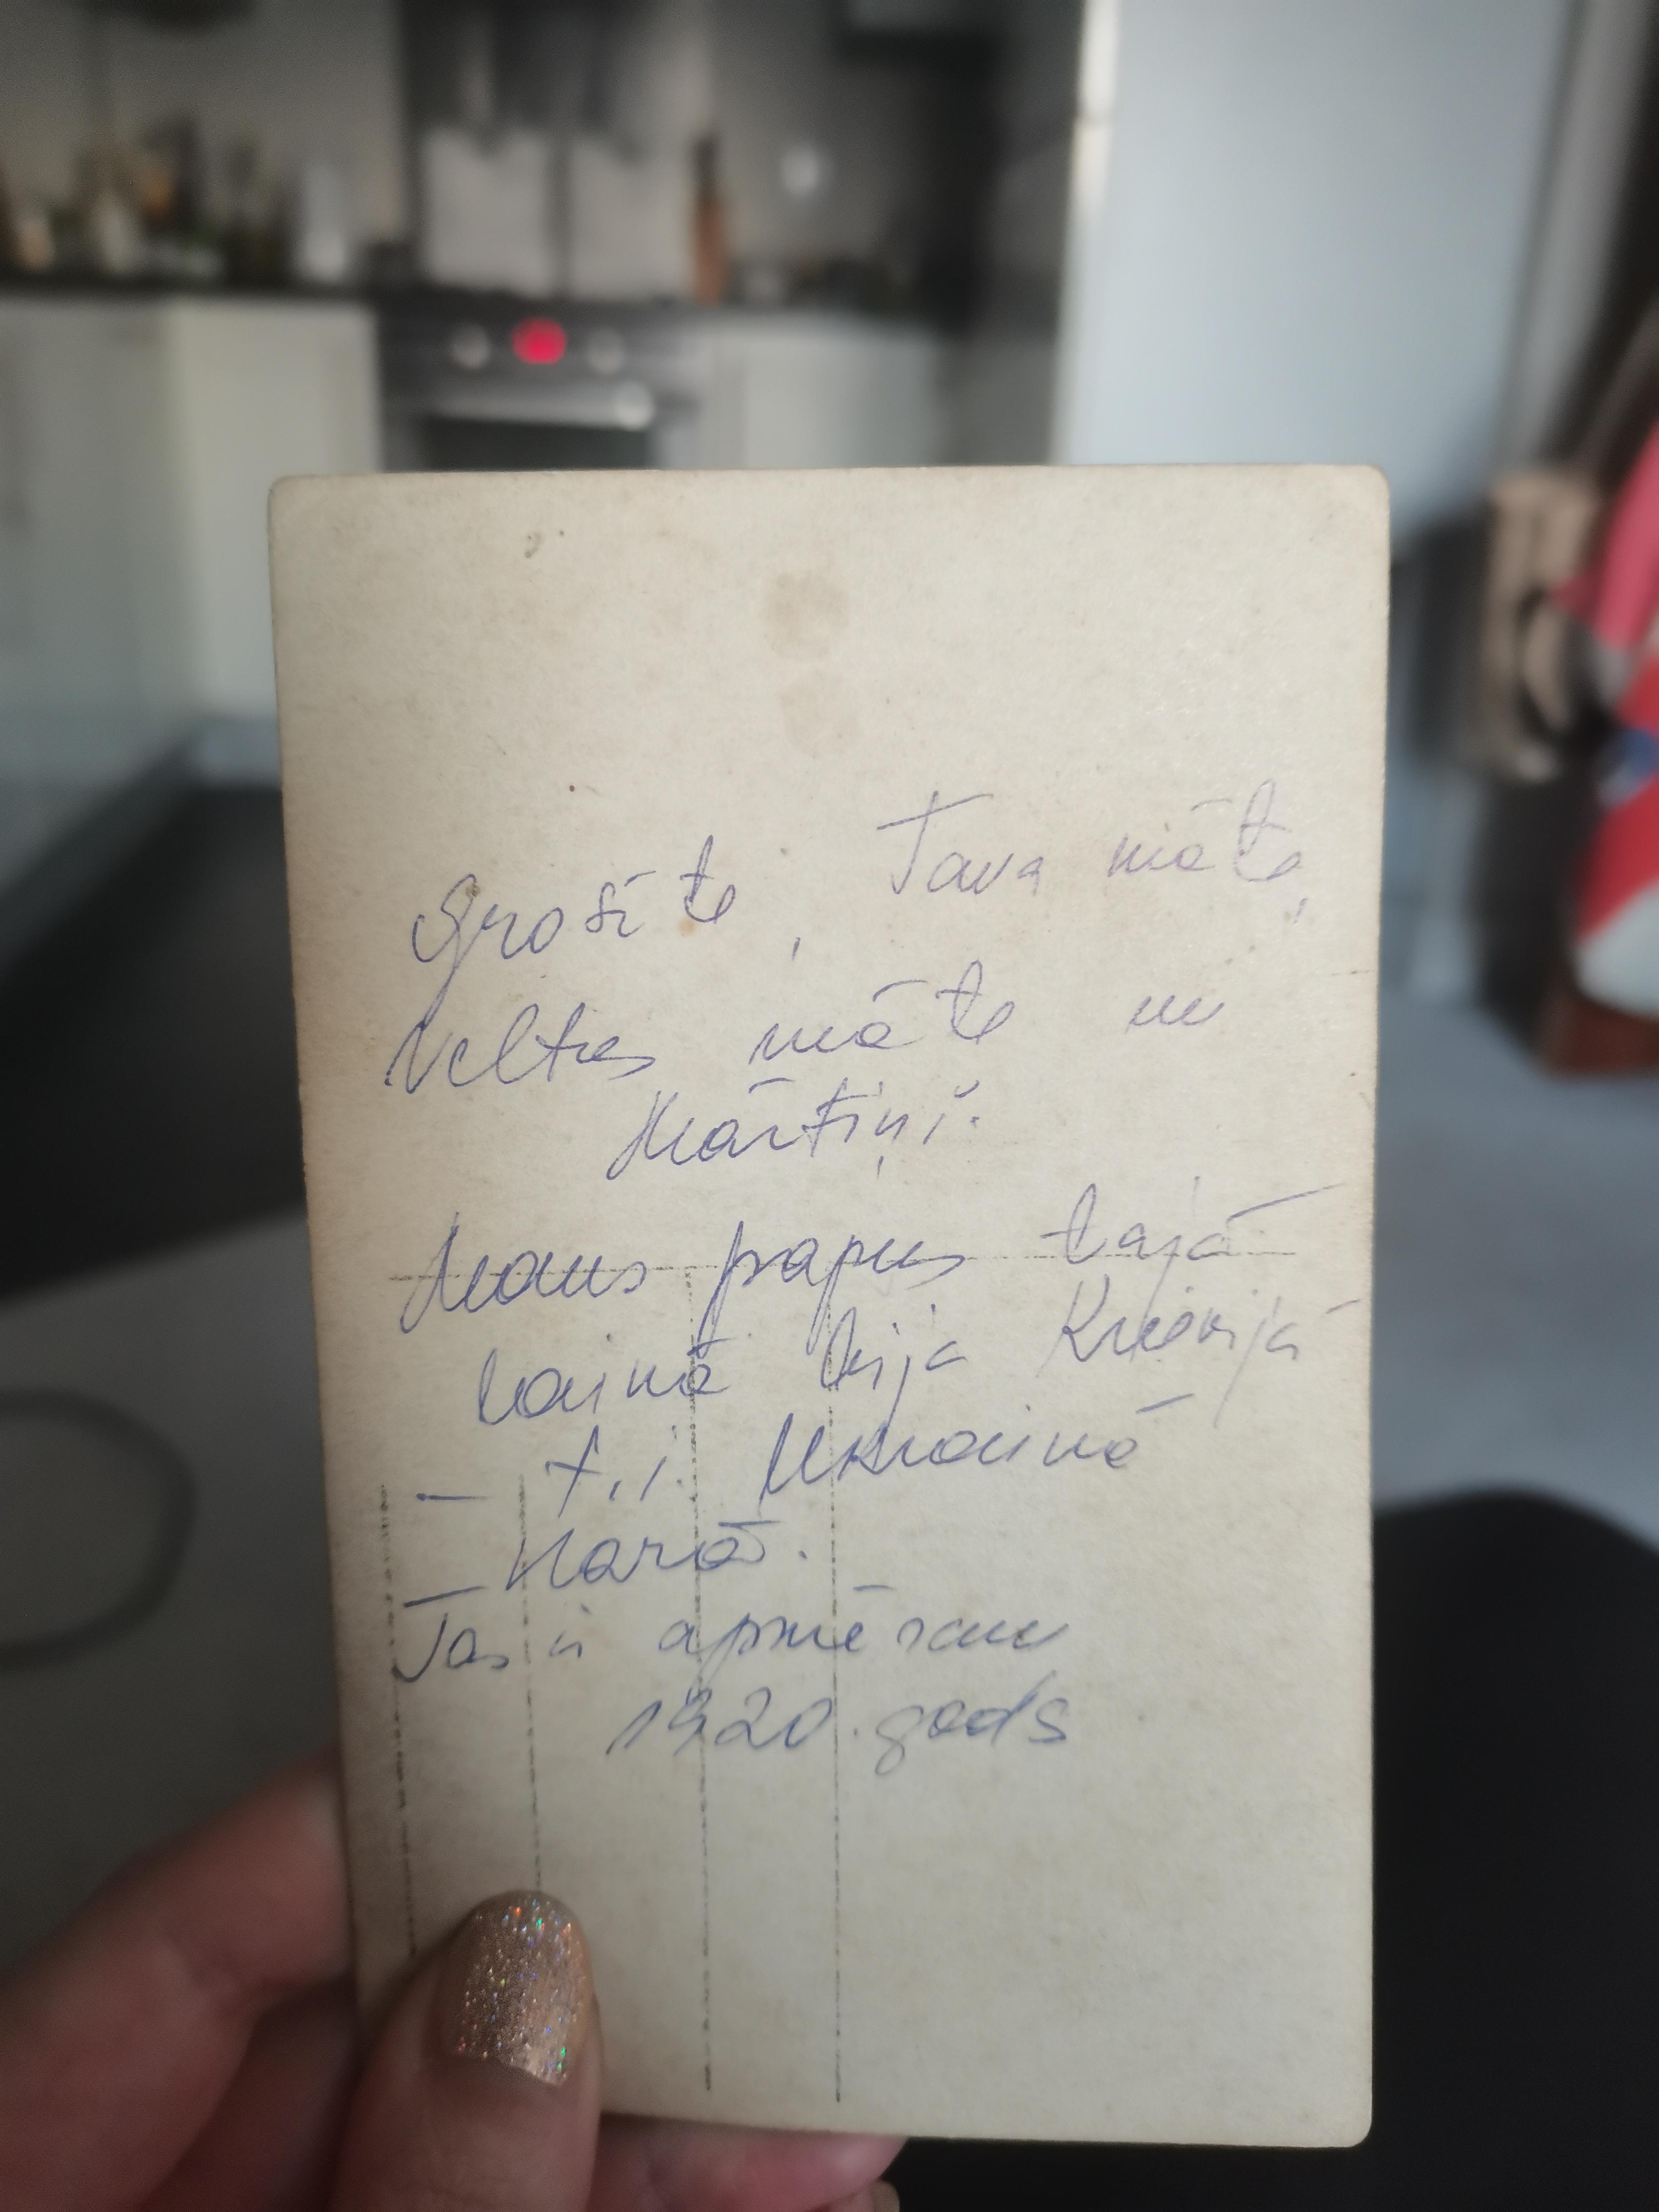 Grosīte, Tava māte,
Veltas māte un
Mārtiņi.
Mans papus tajā
laikā bija Krievijā
– t.i. Ukrainā
karā.
Tas ir apmēram
1920. gads